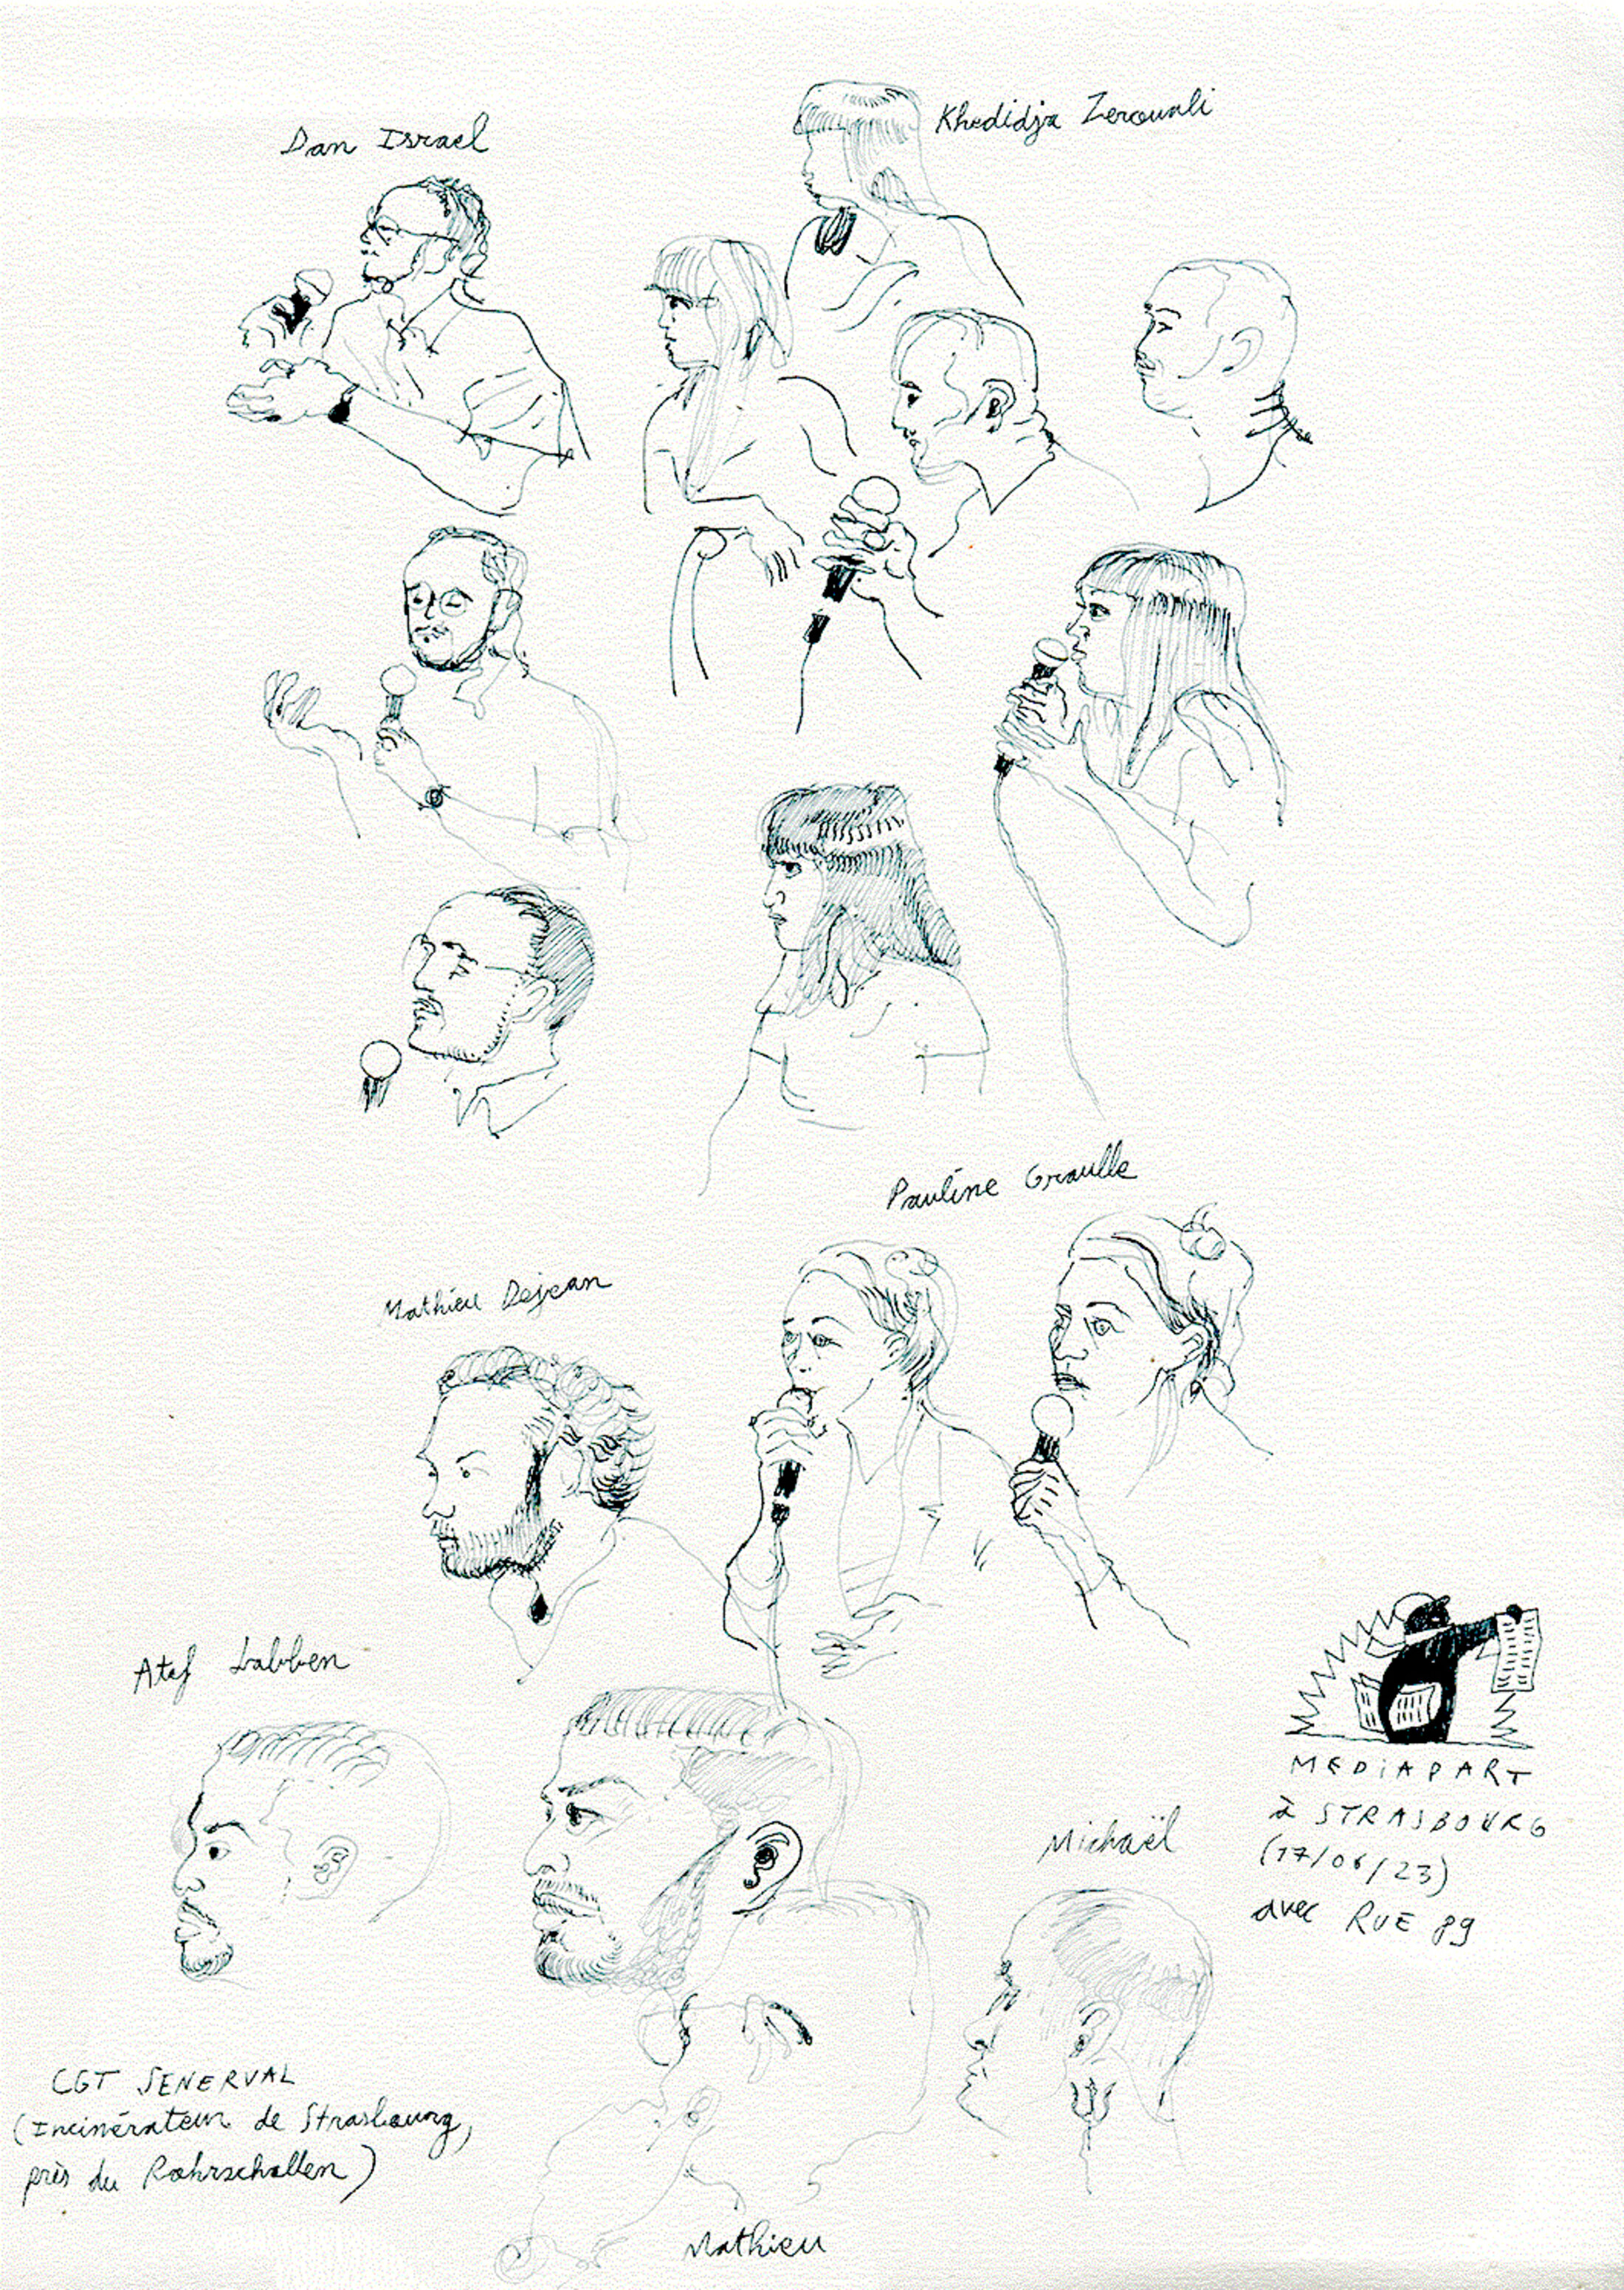 Dan Israel
Khedidja Zerouali
Pauline Graulle
Mathieu Dejean
Atef Labben
MEDiAPART
à STRASBOURG
(17/06/23)
avec RUE 89
Michaël
CGT SENERVAL
(Incinérateur de Strasbourg,
près du Rohrschollen)
Mathieu